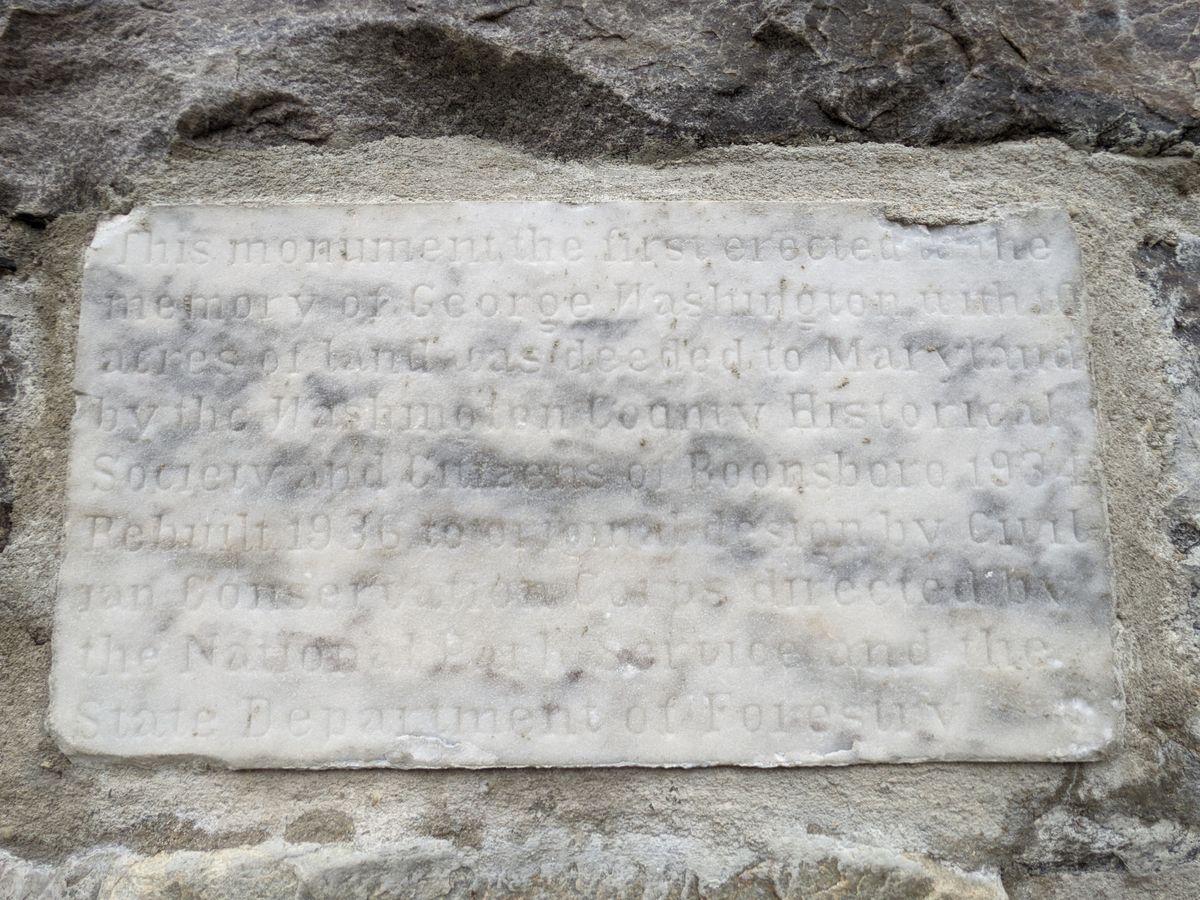 This monument the first erected to the
memory of George Washington with 10
acres of land was deeded to Maryland
by the Washington County Historical
Society and Citizens of Boonsboro 1934
Rebuilt 1936 to original design by Civil
ian Conservation Corps directed by
the National Park Service and the
State Department of Forestry